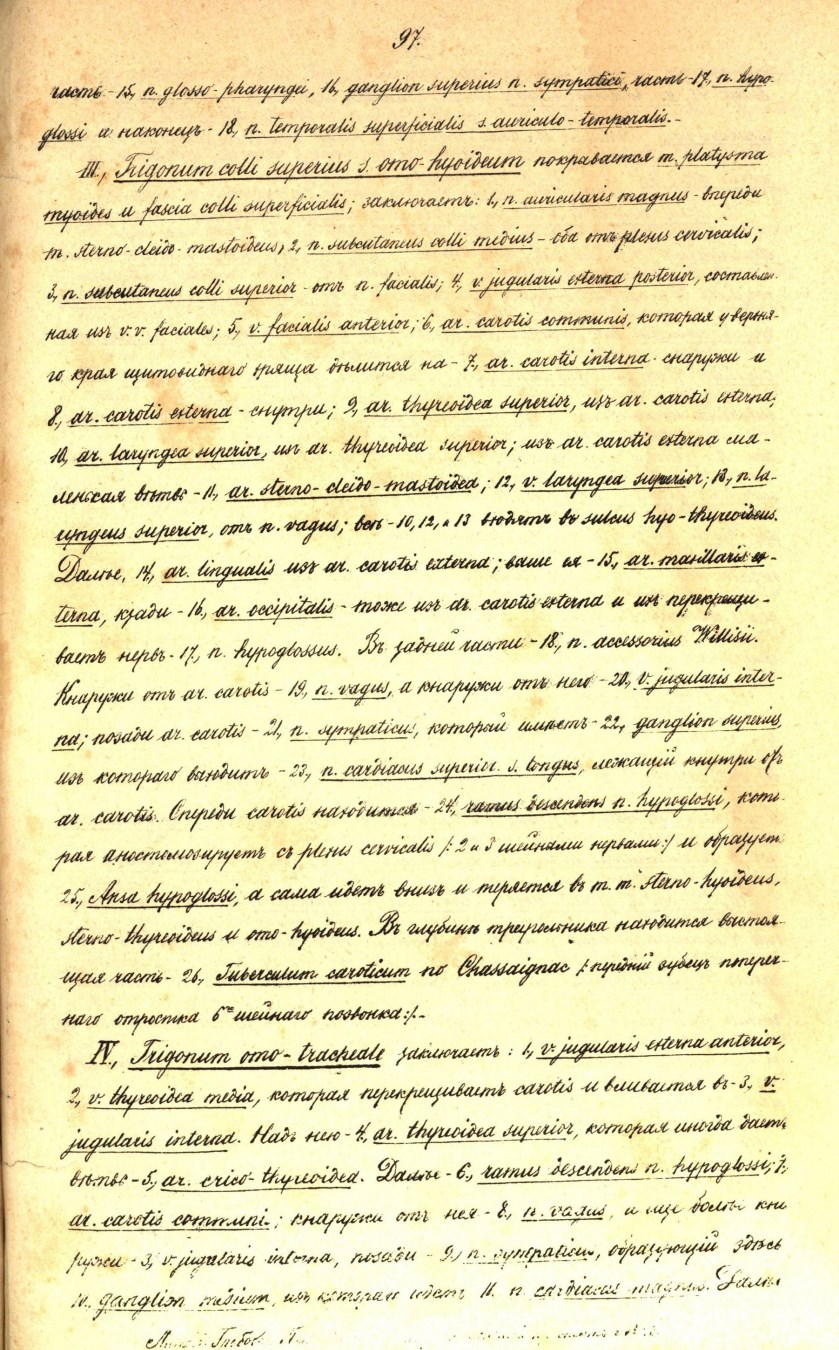 97.
часть - 15, n. glosso-pharyngei, 16, ganglion superius n. sympatici, часть - 17, n. hypo-
glossi и наконецъ - 18, n. temporalis superficialis s. auriculo-temporalis. -
III, Trigonum colli superius s. omo-hyoideum покрывается m. platysma
myoides и fascia colli superficialis; заключаетъ: 1, n. auricularis magnus - впереди
m. sterno-cleido-mastoideus; 2, n. subcutaneus colli medius - оба отъ plexus cervicalis;
3, n. subcutaneus colli superior - отъ n. facialis; 4, v. jugularis externa posterior, составлен-
ная изъ v.v. faciales; 5, v. facialis anterior; 6, ar. carotis communis, которая у верхня-
го края щитовиднаго хряща дѣлится на - 7, ar. carotis interna - снаружи и
8, ar. carotis externa - снутри; 9, ar. thyreoidea superior, изъ ar. carotis externa;
10, ar. laryngea superior, изъ ar. thyreoidea superior; изъ ar. carotis externa ма-
ленькая вѣтвь - 11, ar. sterno-cleido-mastoidea; 12, v. laryngea superior; 13, n. la-
ryngeus superior, отъ n. vagus; всѣ - 10, 12, и 13 входятъ въ sulcus hyo-thyreoideus.
Далѣе, 14, ar. lingualis изъ ar. carotis externa; выше ея - 15, ar. maxillaris ex-
terna, кзади - 16, ar. occipitalis - тоже изъ ar. carotis externa и ихъ перекрещи-
ваетъ нервъ - 17, n. hypoglossus. Въ задней части - 18, n. accessorius Willisii.
Кнаружи отъ ar. carotis - 19, n. vagus, а кнаружи отъ него - 20, v. jugularis inter-
na; позади ar. carotis - 21, n. sympaticus, который имѣетъ - 22, ganglion superius,
изъ котораго выходитъ - 23, n. cardiacus superior s. longus, лежащій кнутри отъ
ar. carotis. Спереди carotis находится - 24, ramus descendens n. hypoglossi, кото-
рая аностомозируетъ съ plexus cervicalis /: 2 и 3 шейными нервами :/ и образуетъ
25, Ansa hypoglossi, а сама идетъ внизъ и теряется въ m. m. sterno-hyoideus,
sterno-thyreoideus и omo-hyoideus. Въ глубинѣ треугольника находится выстоя-
щая часть - 26, Tuberculum caroticum по Chassaignac /: передній зубецъ попереч-
наго отростка 6го шейнаго позвонка :/. -
IV, Trigonum omo-tracheale заключаетъ: 1, v. jugularis externa anterior,
2, v. thyreoidea media, которая перекрещиваетъ carotis и вливается въ - 3, v.
jugularis interna. Надъ нею - 4, ar. thyreoidea superior, которая иногда даетъ
вѣтвь - 5, ar. crico-thyreoidea. Далѣе - 6, ramus descendens n. hypoglossi; 7,
ar. carotis communi; кнаружи отъ нея - 8, n. vagus, и еще болѣе кна
ружи - 3, v. jugularis interna, позади - 9, n. sympaticus, образующій здѣсь
10, ganglion medium, изъ котораго идетъ 11, n. cardiacus magnus. Далѣе